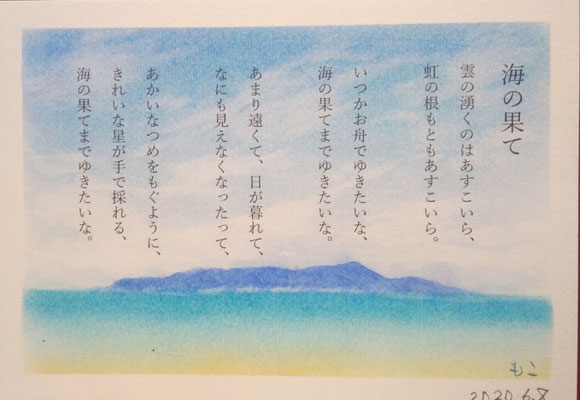 海の果て
雲の湧くのはあすこいら、
虹の根もともあすこいら。
いつかお舟でゆきたいな、
海の果てまでゆきたいな。
あまり遠くて、日が暮れて、
なにも見えなくなったって、
あかいなつめをもぐように、
きれいな星が手で採れる、
海の果てまでゆきたいな。
もこ
2020.6.8